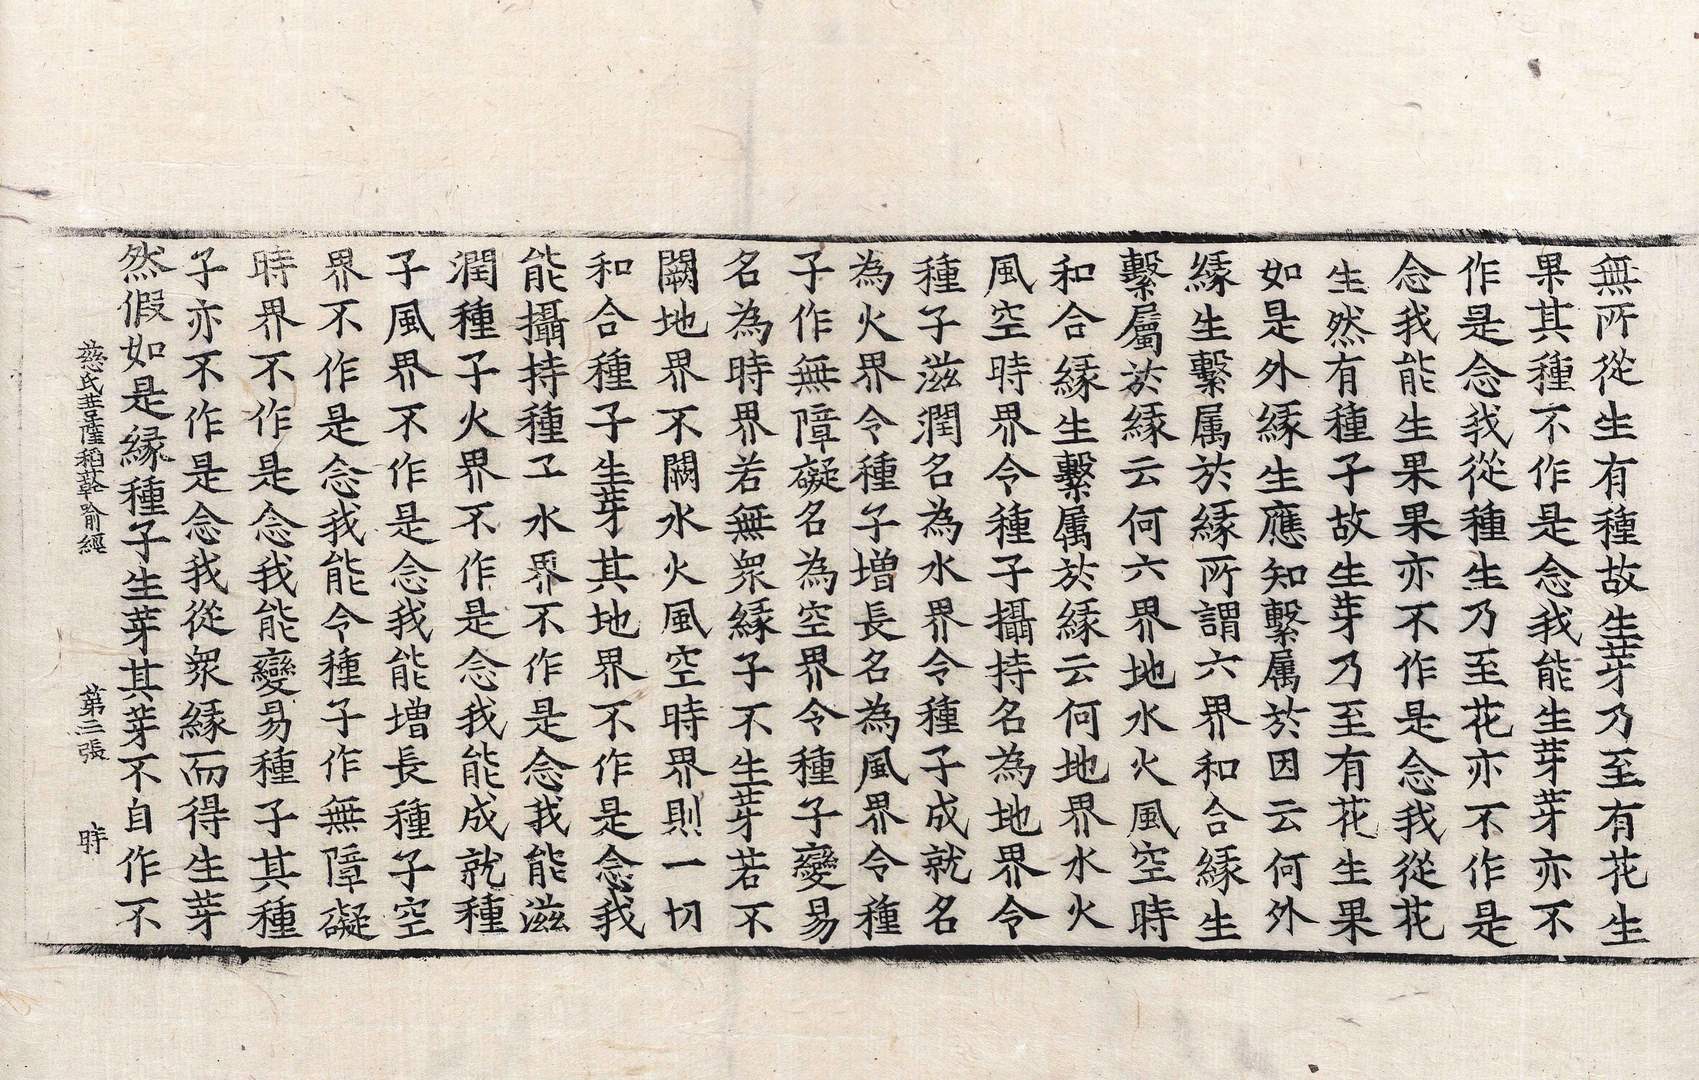 無所從生有種故生芽乃至有花生
果其種不作是念我能生芽芽亦不
作是念我從種生乃至花亦不作是
念我能生果果亦不作是念我從花
生然有種子故生芽乃至有花生果
如是外縁生應知繫属於因云何外
縁生繫属於縁所謂六界和合縁生
繫屬於縁云何六界地水火風空時
和合縁生繫属於縁云何地界水火
風空時界令種子攝持名為地界令
種子滋潤名為水界令種子成就名
為火界令種子增長名為風界令種
子作無障礙名為空界令種子變易
名為時界若無眾縁子不生芽若不
闕地界不闕水火風空時界則一切
和合種子生芽其地界不作是念我
能攝持種子水界不作是念我能滋
潤種子火界不作是念我能成就種
子風界不作是念我能增長種子空
界不作是念我能令種子作無障礙
時界不作是念我能變易種子其種
子亦不作是念我從眾縁而得生芽
然假如是縁種子生芽其芽不自作不
慈氏菩薩稻𦼮喻經 第三張 時